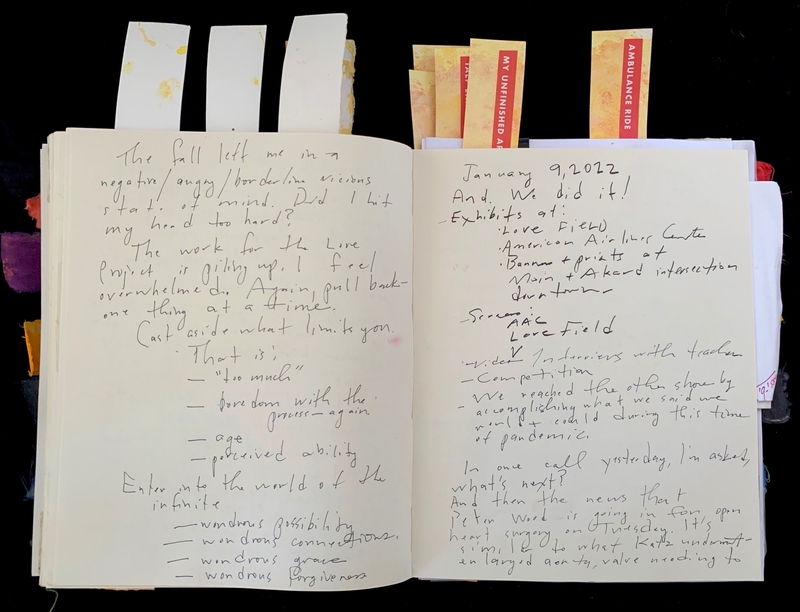 MY UNFINISHED AR
AMBULANCE RIDE
The fall left me in a
negative/angry/borderline vicious
state of mind. Did I hit
my head too hard?
The work for the Love
Project is piling up. I feel
overwhelmed. Again, pull back-
one thing at a time.
Cast aside what limits you.
That is:
— "too much"
— boredom with the
process—again
— age
— perceived ability
Enter into the world of the
infinite
— wondrous possibility
— wondrous connections.
— wondrous grace
— wondrous forgiveness
January 9, 2022
And. We did it!
- Exhibits at:
· Love Field
· American Airlines Center
· Banners + prints at
Main + Akard intersection
downtown
- Screens:
AAC
Love Field
- Video Interviews with teachers
- Competition
- We reached the other shore by
accomplishing what we said we
would + could during this time
of pandemic.
In one call yesterday, I'm asked,
what's next?
And then the news that
Peter Wood is going in for open
heart surgery on Tuesday. It's
similar to what Katz underwent-
enlarged aorta, valve needing to